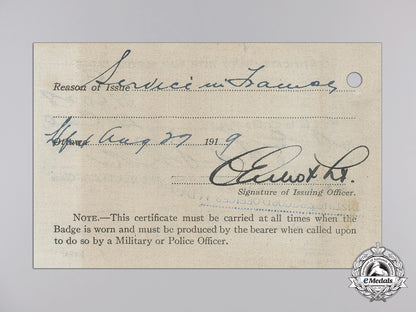 Reason of Issue Service in France
Ottawa Hfx Aug 27 1919
Lt.
Signature of Issuing Officer.
NOTE.—This certificate must be carried at all times when the
Badge is worn and must be produced by the bearer when called upon
to do so by a Military or Police Officer.
eMedals